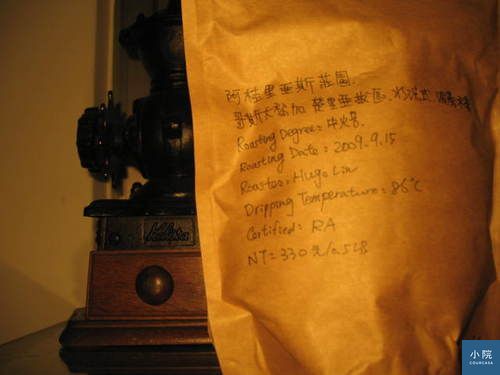 阿桂里亞斯莊園.
哥斯大黎加 楚里亞故區. 水洗式
Roasting Degree: 中火
Roasting Date: 2009.9.15
Roaster: Hugo Lin
Dripping Temperature: 86℃
Certified: RA
NT = 330元/0.5LB
小院
COURCASA